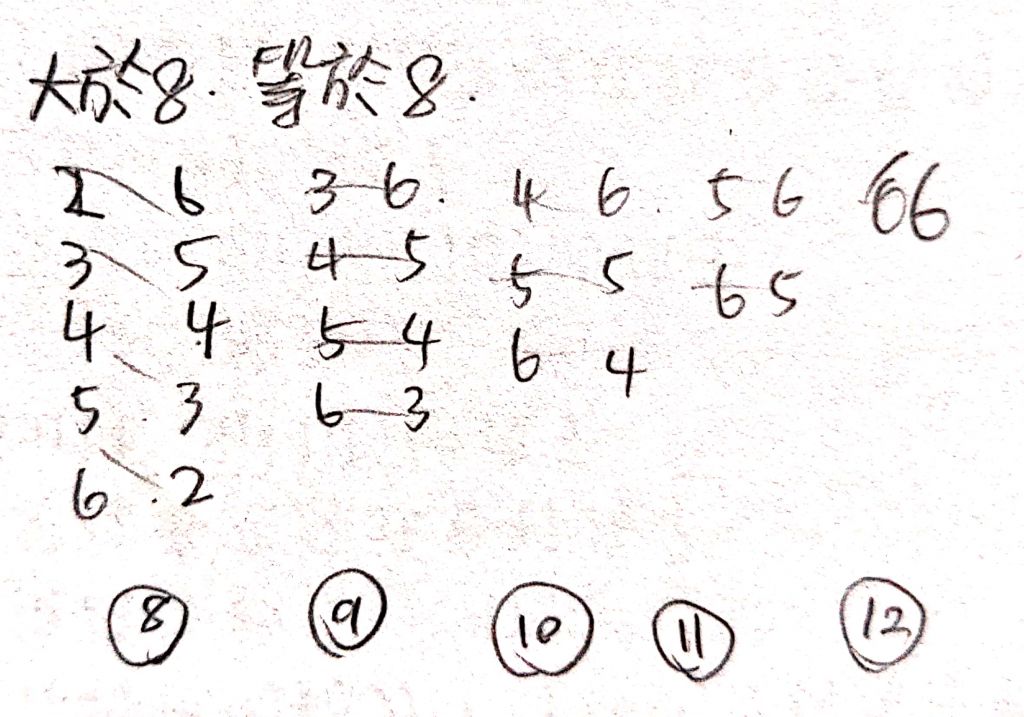 大於8. 等於8.
2 6 3 6. 4 6. 5 6 66
3 5 4 5 5 5 6 5
4 4 5 4 6 4
5 . 3 6 3
6 . 2
8 9 10 11 12